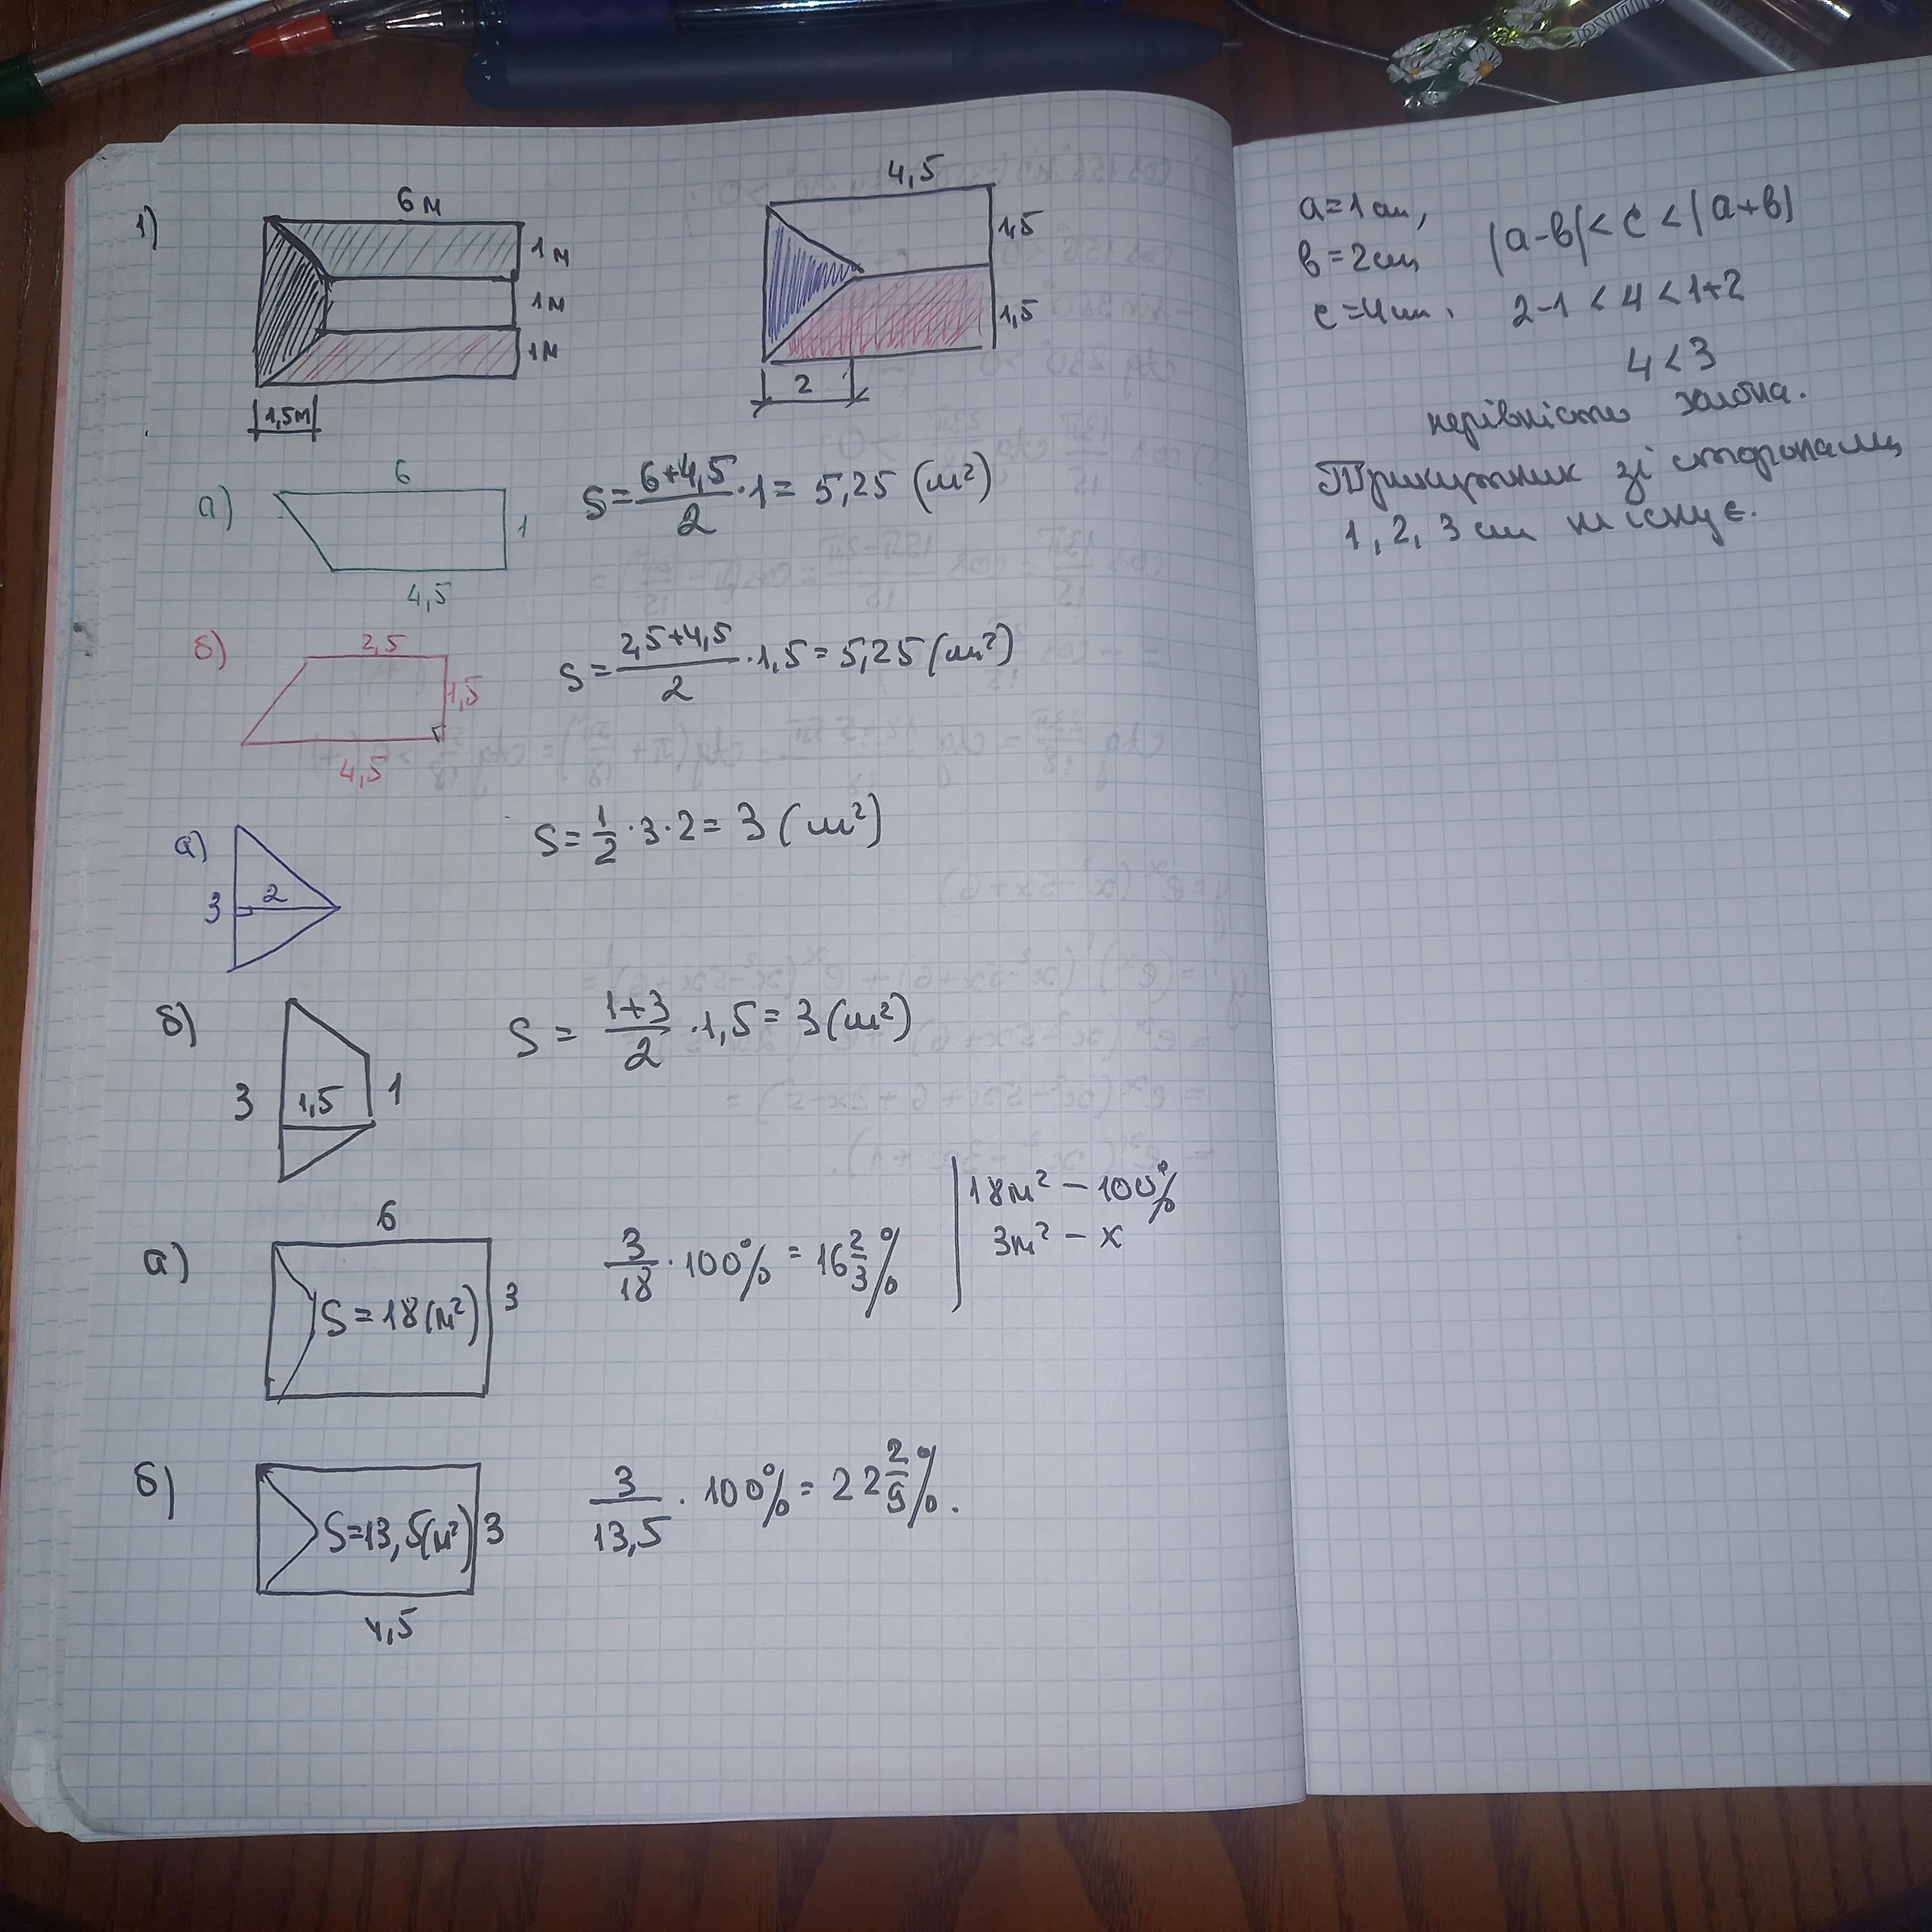 1)
6 м
1 м
1м
1м
1,5м
4,5
1,5
1,5
2
а)
6
1
4,5
S = (6+4,5)/2 · 1 = 5,25 (м²)
б)
2,5
1,5
4,5
S = (2,5+4,5)/2 · 1,5 = 5,25 (м²)
а)
3
2
S = 1/2 · 3 · 2 = 3 (м²)
б)
3
1,5
1
S = (1+3)/2 · 1,5 = 3 (м²)
а)
6
S = 18 (м²)
3
3/18 · 100% = 16 2/3 %
18м² – 100%
3м² – x
б)
S = 13,5 (м²)
3
4,5
3/13,5 · 100% = 22 2/9 %.
a = 1 см,
в = 2 см
c = 4 см.
|a-в| < c < |a+в|
2-1 < 4 < 1+2
4 < 3
нерівність хибна.
Трикутник зі сторонами
1, 2, 3 см не існує.